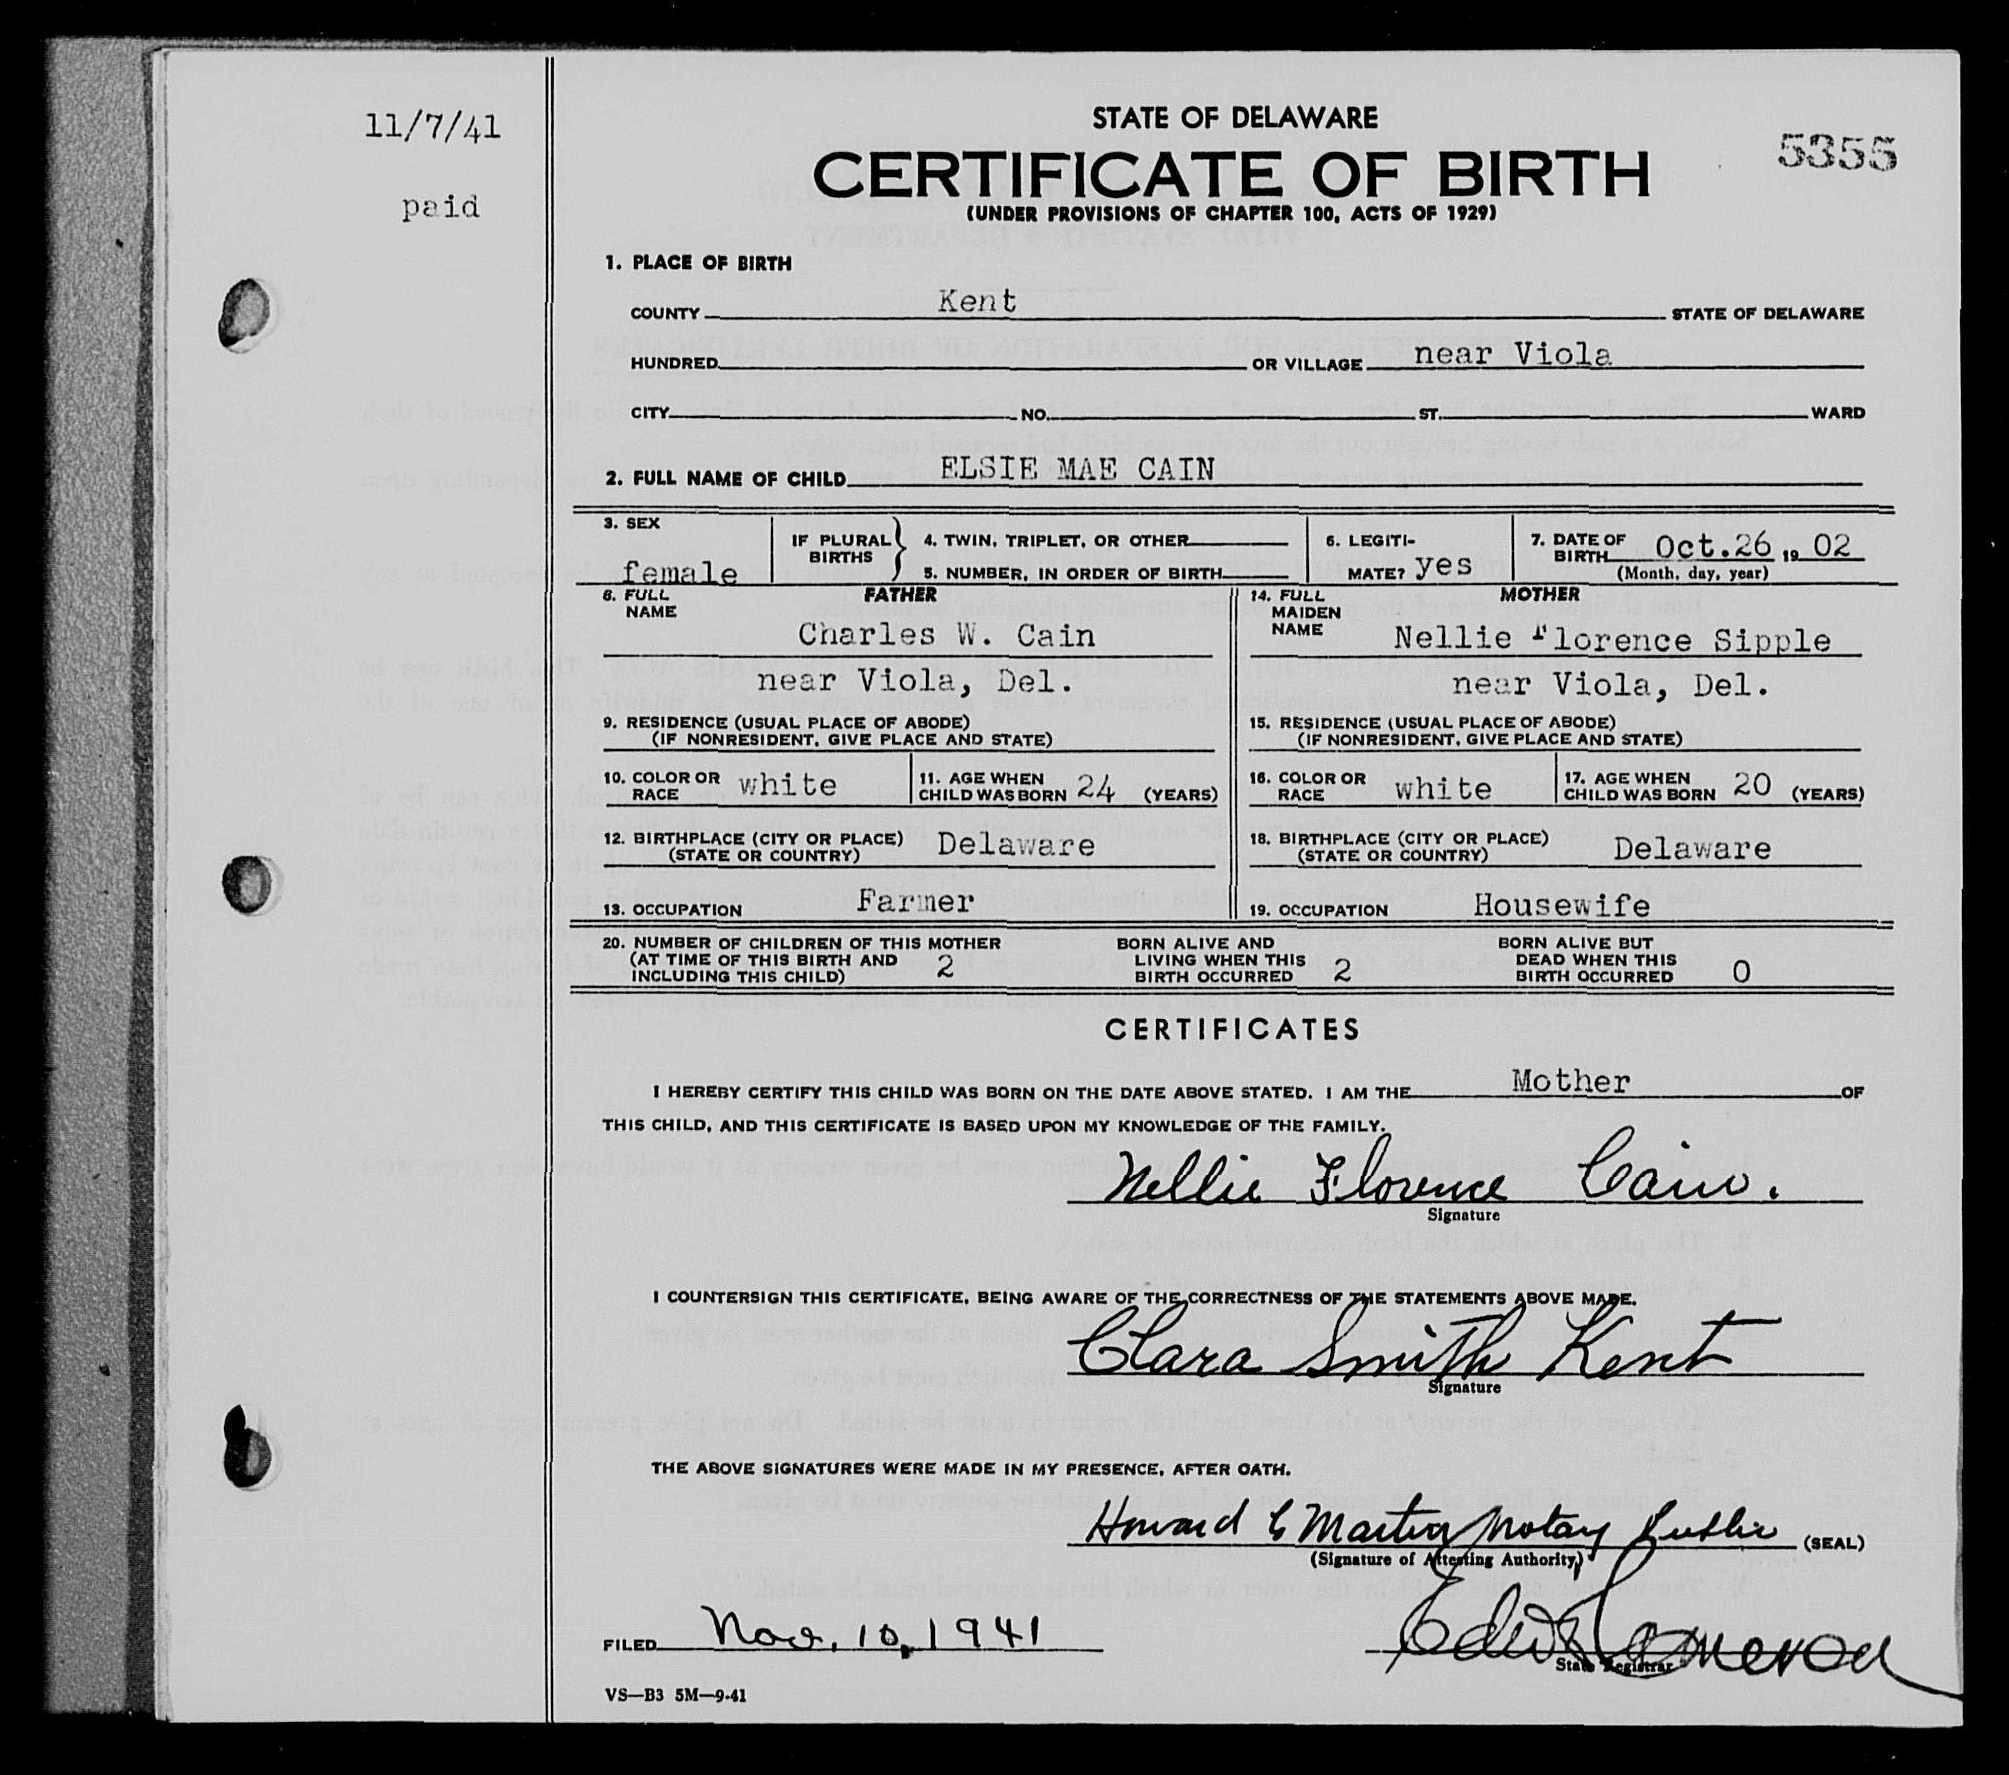 11/7/41
paid
STATE OF DELAWARE
CERTIFICATE OF BIRTH
5355
(UNDER PROVISIONS OF CHAPTER 100, ACTS OF 1929)
1. PLACE OF BIRTH
COUNTY Kent STATE OF DELAWARE
HUNDRED OR VILLAGE near Viola
CITY NO. ST. WARD
2. FULL NAME OF CHILD ELSIE MAE CAIN
3. SEX female
IF PLURAL BIRTHS } 4. TWIN, TRIPLET, OR OTHER
5. NUMBER, IN ORDER OF BIRTH
6. LEGITI-
MATE? yes
7. DATE OF
BIRTH Oct.26 19 02
(Month, day, year)
8. FULL
NAME
FATHER
Charles W. Cain
near Viola, Del.
9. RESIDENCE (USUAL PLACE OF ABODE)
(IF NONRESIDENT, GIVE PLACE AND STATE)
10. COLOR OR
RACE white
11. AGE WHEN
CHILD WAS BORN 24 (YEARS)
12. BIRTHPLACE (CITY OR PLACE)
(STATE OR COUNTRY) Delaware
13. OCCUPATION Farmer
14. FULL
MAIDEN
NAME
MOTHER
Nellie Florence Sipple
near Viola, Del.
15. RESIDENCE (USUAL PLACE OF ABODE)
(IF NONRESIDENT, GIVE PLACE AND STATE)
16. COLOR OR
RACE white
17. AGE WHEN
CHILD WAS BORN 20 (YEARS)
18. BIRTHPLACE (CITY OR PLACE)
(STATE OR COUNTRY) Delaware
19. OCCUPATION Housewife
20. NUMBER OF CHILDREN OF THIS MOTHER
(AT TIME OF THIS BIRTH AND
INCLUDING THIS CHILD) 2
BORN ALIVE AND
LIVING WHEN THIS
BIRTH OCCURRED 2
BORN ALIVE BUT
DEAD WHEN THIS
BIRTH OCCURRED 0
CERTIFICATES
I HEREBY CERTIFY THIS CHILD WAS BORN ON THE DATE ABOVE STATED. I AM THE Mother OF
THIS CHILD, AND THIS CERTIFICATE IS BASED UPON MY KNOWLEDGE OF THE FAMILY.
Nellie Florence Cain.
Signature
I COUNTERSIGN THIS CERTIFICATE, BEING AWARE OF THE CORRECTNESS OF THE STATEMENTS ABOVE MADE.
Clara Smith Kent
Signature
THE ABOVE SIGNATURES WERE MADE IN MY PRESENCE, AFTER OATH.
Howard C Martin Notary Public (SEAL)
(Signature of Attesting Authority)
FILED Nov. 10, 1941
Cameron
State Registrar
VS—B3 5M—9-41